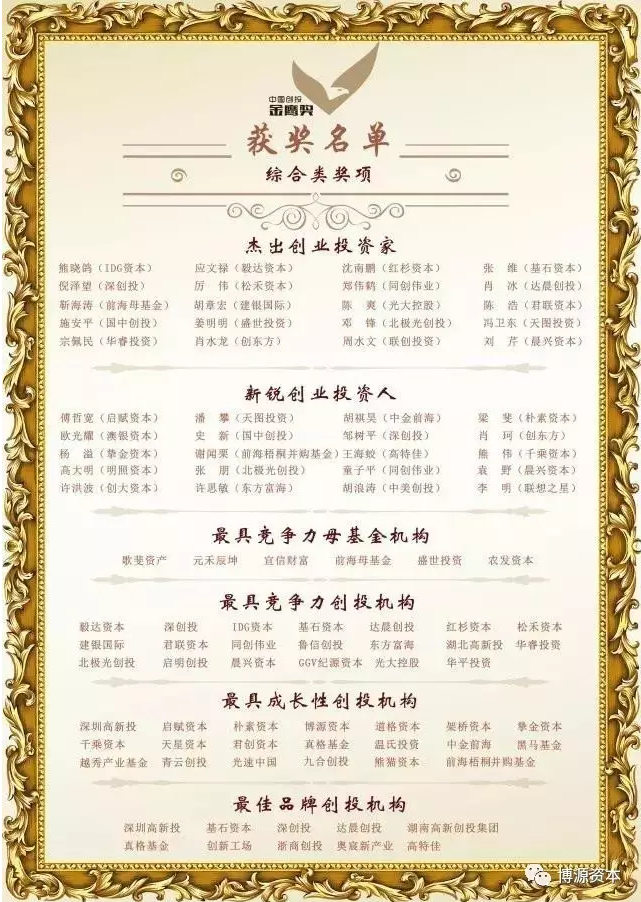 中国创投
金鹰奖
获奖名单
综合类奖项
杰出创业投资家
熊晓鸽（IDG资本） 应文禄（毅达资本） 沈南鹏（红杉资本） 张 维（基石资本）
倪泽望（深创投） 厉 伟（松禾资本） 郑伟鹤（同创伟业） 肖 冰（达晨创投）
靳海涛（前海母基金） 胡章宏（建银国际） 陈 爽（光大控股） 陈 浩（君联资本）
施安平（国中创投） 姜明明（盛世投资） 邓 锋（北极光创投） 冯卫东（天图投资）
宗佩民（华睿投资） 肖水龙（创东方） 周水文（联创投资） 刘 芹（晨兴资本）
新锐创业投资人
傅哲宽（启赋资本） 潘 攀（天图投资） 胡祺昊（中金前海） 梁 斐（朴素资本）
欧光耀（澳银资本） 史 新（国中创投） 邹树平（深创投） 肖 珂（创东方）
杨 溢（挚金资本） 谢闻栗（前海梧桐并购基金） 王海蛟（高特佳） 熊 伟（千乘资本）
高大明（明照资本） 张 朋（北极光创投） 童子平（同创伟业） 袁 野（晨兴资本）
许洪波（创大资本） 许思敏（东方富海） 胡浪涛（中美创投） 李 明（联想之星）
最具竞争力母基金机构
歌斐资产 元禾辰坤 宜信财富 前海母基金 盛世投资 农发资本
最具竞争力创投机构
毅达资本 深创投 IDG资本 基石资本 达晨创投 红杉资本 松禾资本
建银国际 君联资本 同创伟业 鲁信创投 东方富海 湖北高新投 华睿投资
北极光创投 启明创投 晨兴资本 GGV纪源资本 光大控股 华平投资
最具成长性创投机构
深圳高新投 启赋资本 朴素资本 博源资本 道格资本 架桥资本 挚金资本
千乘资本 天星资本 君创资本 真格基金 温氏投资 中金前海 黑马基金
越秀产业基金 青云创投 光速中国 九合创投 熊猫资本 前海梧桐并购基金
最佳品牌创投机构
深圳高新投 基石资本 深创投 达晨创投 湖南高新创投集团
真格基金 创新工场 浙商创投 奥宸新产业 高特佳
博源资本